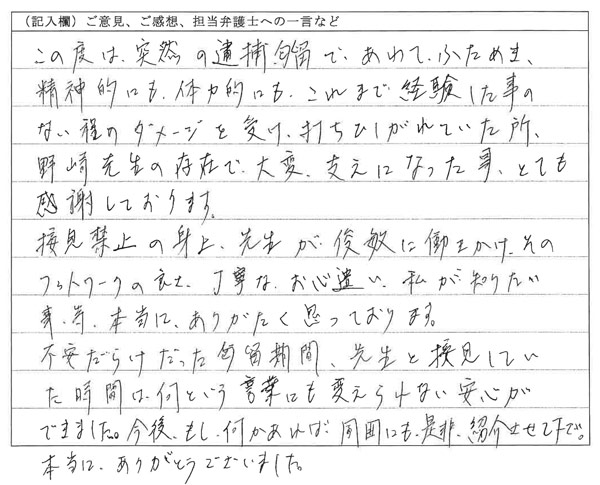 （記入欄）ご意見、ご感想、担当弁護士への一言など
この度は、突然の逮捕、勾留で、あわて、ふためき、
精神的にも、体力的にも、これまで経験した事の
ない程のダメージを受け、打ちひしがれていた所、
野崎先生の存在で、大変、支えになった事、とても
感謝しております。
接見禁止の身上、先生が俊敏に働きかけ、その
フットワークの良さ、丁寧な、お心遣い、私が知りたい
事、等、本当に、ありがたく思っております。
不安だらけだった勾留期間、先生と接見してい
た時間は、何という言葉にも変えられない安心が
できました。今後、もし、何かあれば周囲にも、是非、紹介させて下さい。
本当に、ありがとうございました。